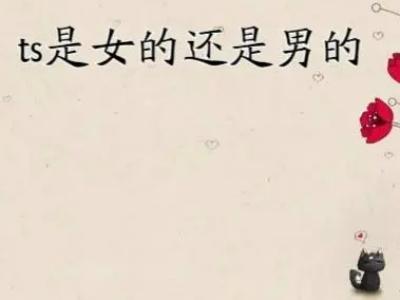 ts是女的还是男的